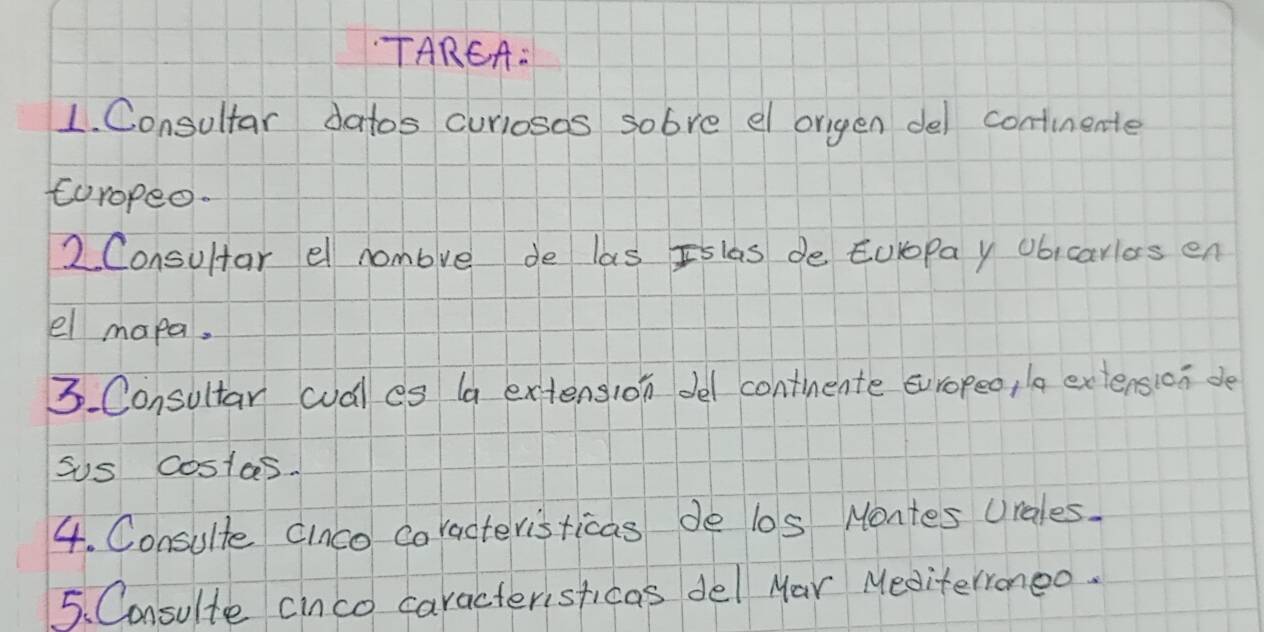 TAREA:
1. Consultar datos curiosos sobre el origen del continente
Europeo.
2. Consultar el nombre de las Islas de Europa y Ubicarlas en
el mapa.
3. Consultar cual es la extensión del continente Europeo, la extensión de
sus costas.
4. Consulte cinco caracteristicas de los Montes Urales.
5. Consulte cinco caracteristicas del Mar Mediterraneo.